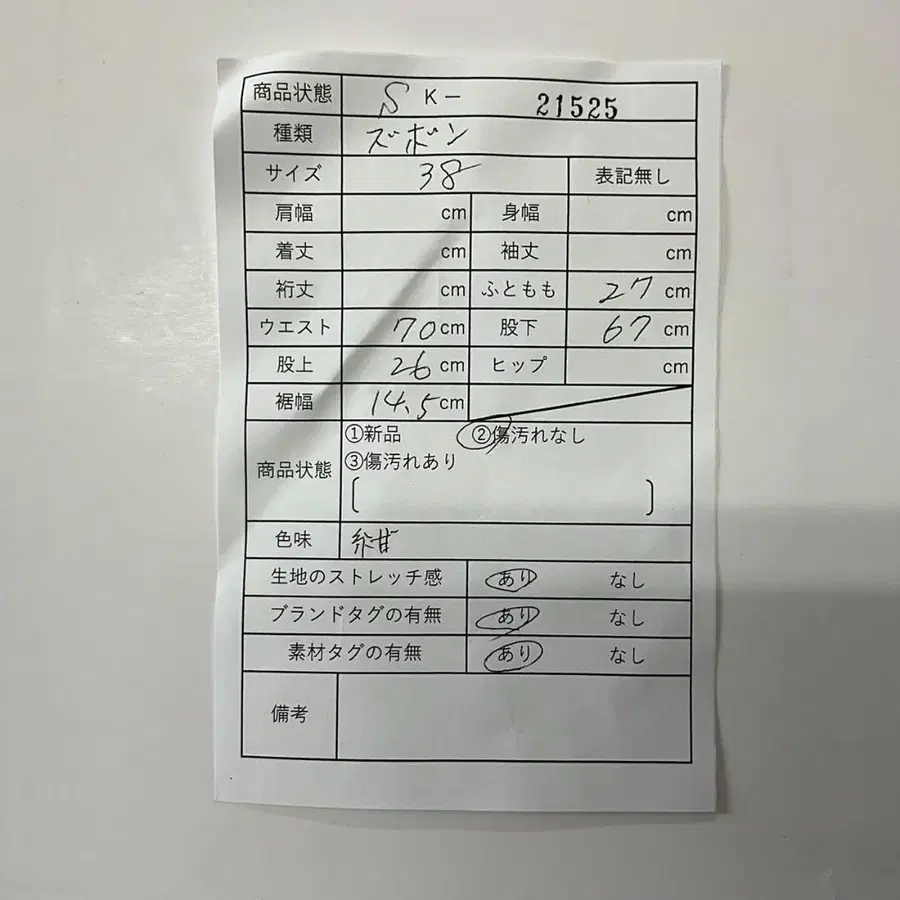 商品状態 S K- 21525
種類 ズボン
サイズ 38 表記無し
肩幅 cm 身幅 cm
着丈 cm 袖丈 cm
裄丈 cm ふともも 27 cm
ウエスト 70 cm 股下 67 cm
股上 26 cm ヒップ cm
裾幅 14.5 cm
商品状態 ①新品 ②傷汚れなし
③傷汚れあり
[ ]
色味 紺
生地のストレッチ感 あり なし
ブランドタグの有無 あり なし
素材タグの有無 あり なし
備考